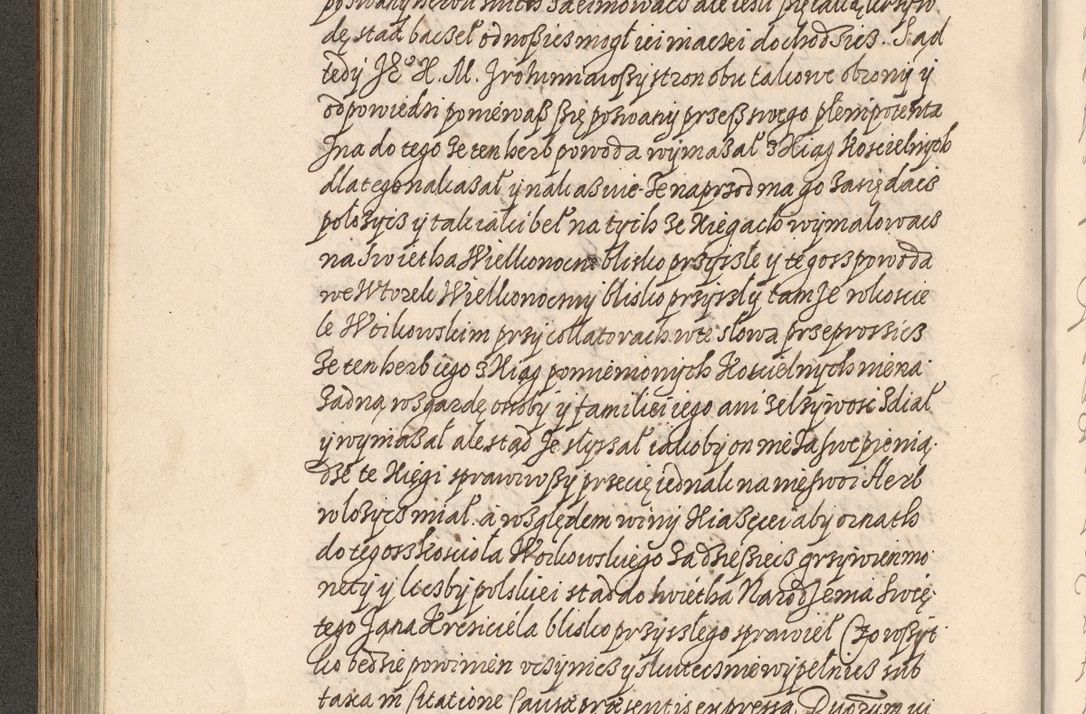 dę stad baczeł odnoszicz mogł iei inaczei dochodzicz. Sąd
tedy J K. M. zrozumiawszy stron obu takowe obrony y
odpowiedzi poniewasz się pozwany przesz swego plenipotenta
zna do tego że ten herb powoda wymazał z Xiąg Koscielnych
dlatego nakazał y nakazuie że naprzod ma go zasię dacz
położycz y tak iaki beł na tych że Xięgach wymalowacz
na Swietha Wielkonocne blisko przyszłe y tegosz powoda
we Wtorek Wielkonocny blisko przyszły tamże w kosciele
le Woikowskim przy collatorach w te słowa przeprosicz
że ten herb iego z Xiąg pomienionych Koscielnych nie na
żadną wzgardę osoby y familiei iego ani zelzywosc zdiał
y wymazał ale stąd że słyszał iakoby on nie za swe pienią
dze te Xięgi sprawiwszy przecię iednak na nie swoi Herb
włozycz miał. a względem winy Xiaszęcei aby ornath
do tegosz koscioła Woikowskiego za dziesięcz grzywien mo
nety y liczby polskiei stąd do swietha Narodzenia Swię
tego Jana Krzciciela blisko przyszłego sprawieł Czo wszyt
ko bedzie powinien uczynicz y skutecznie wypełnicz sub
taxa in Citatione Causæ præsentis expressa. Quorum vi